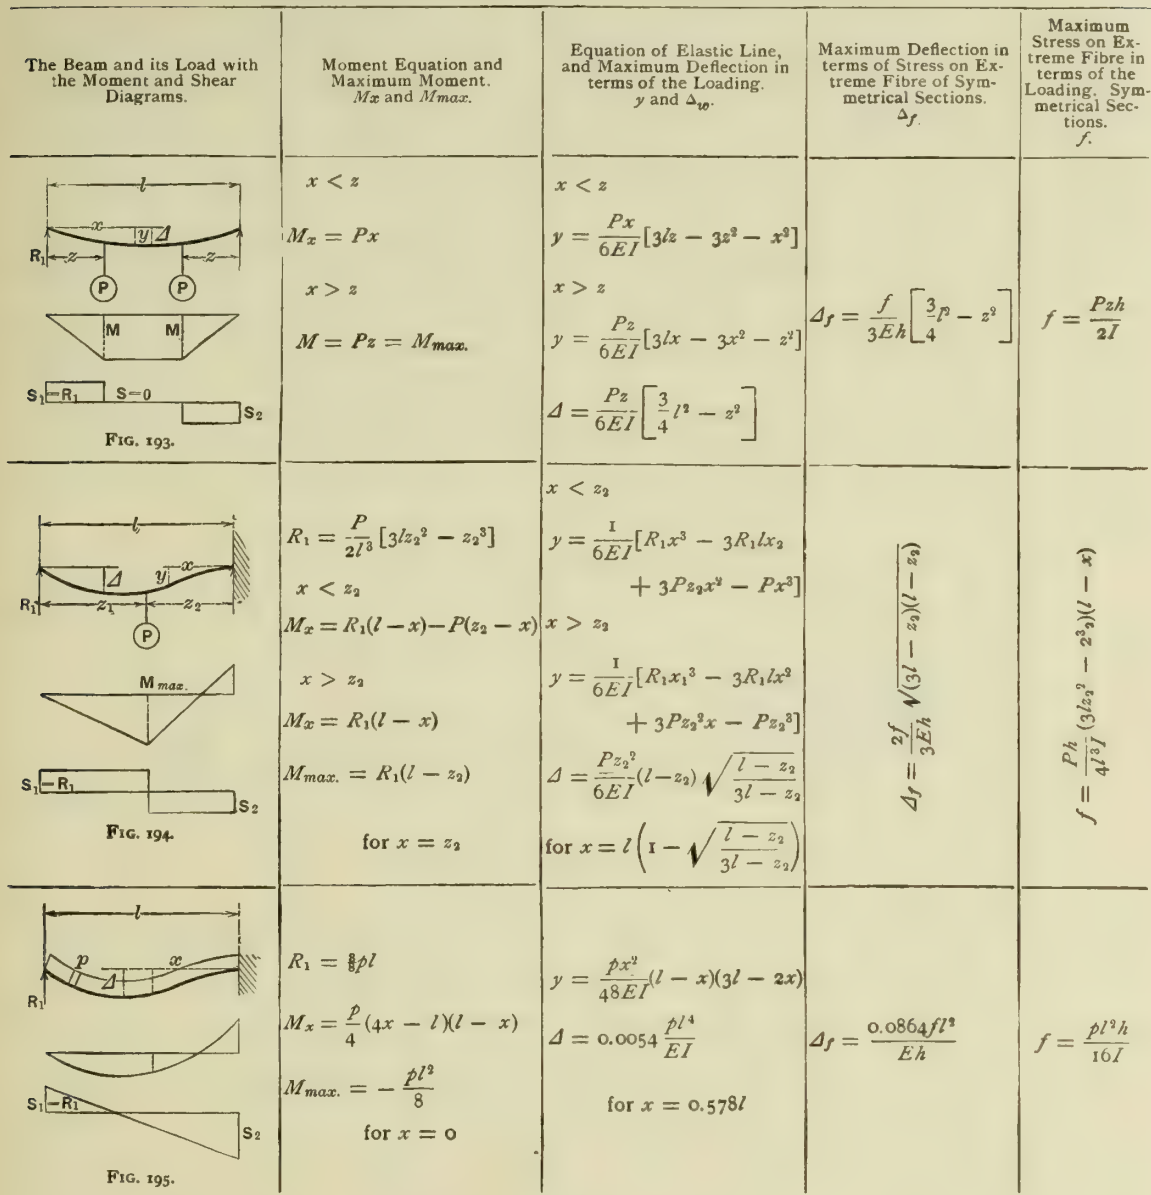 The Beam and its Load with
the Moment and Shear
Diagrams.
Moment Equation and
Maximum Moment.
Mx and Mmax.
Equation of Elastic Line,
and Maximum Deflection in
terms of the Loading.
y and Δw.
Maximum Deflection in
terms of Stress on Ex-
treme Fibre of Sym-
metrical Sections.
Δf.
Maximum
Stress on Ex-
treme Fibre in
terms of the
Loading. Sym-
metrical Sec-
tions.
f.
l
x y Δ
R₁ z z
P P
M M
S₁=R₁ S=0 S₂
FIG. 193.
x < z
Mx = Px
x > z
M = Pz = Mmax.
x < z
y = Px/6EI [3lz − 3z² − x²]
x > z
y = Pz/6EI [3lx − 3x² − z²]
Δ = Pz/6EI [3/4 l² − z²]
Δf = f/3Eh [3/4 l² − z²]
f = Pzh/2I
l
Δ y x
R₁ z₁ z₂
P
M max.
S₁=R₁ S₂
FIG. 194.
R₁ = P/2l³ [3lz₂² − z₂³]
x < z₂
Mx = R₁(l − x) − P(z₂ − x)
x > z₂
Mx = R₁(l − x)
Mmax. = R₁(l − z₂)
for x = z₂
x < z₂
y = 1/6EI [R₁x³ − 3R₁lx₂
+ 3Pz₂x² − Px³]
x > z₂
y = 1/6EI [R₁x₁³ − 3R₁lx²
+ 3Pz₂²x − Pz₂³]
Δ = Pz₂²/6EI (l − z₂) √((l − z₂)/(3l − z₂))
for x = l (1 − √((l − z₂)/(3l − z₂)))
Δf = 2f/3Eh √(3l − z₂)(l − z₂)
f = Ph/4l³I (3lz₂² − 2³₂)(l − x)
l
p Δ x
R₁
S₁=R₁ S₂
FIG. 195.
R₁ = ⅜pl
Mx = p/4 (4x − l)(l − x)
Mmax. = − pl²/8
for x = 0
y = px²/48EI (l − x)(3l − 2x)
Δ = 0.0054 pl⁴/EI
for x = 0.578l
Δf = 0.0864fl²/Eh
f = pl²h/16I